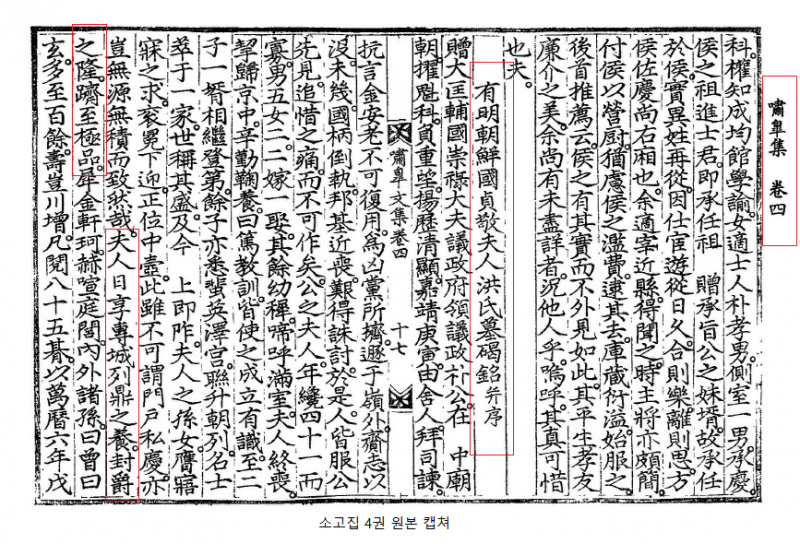 嘯皐集 卷四
科權知成均館學諭女適士人朴孝男側室一男承慶
侯之祖進士君即承任祖 贈承旨公之妹壻故承任
於侯實異姓再從因仕宦遊從日久合則樂離則思方
侯佐慶尚右廂也余適宰近縣得聞之時主將亦頗簡
付侯以營廚猶慮侯之濫費逮其去庫藏衍溢始服之
後首推薦云侯之有其實而不外見如此其平生孝友
廉介之美余尚有未盡詳者況他人乎嗚呼其眞可惜
也夫
有明朝鮮國貞敬夫人洪氏墓碣銘 幷序
贈大匡輔國崇祿大夫議政府領議政朴公在 中廟
朝擢魁科負重望揚歷清顯嘉靖庚寅由舍人拜司諫
嘯皐文集卷四 十七
抗言金安老不可復用爲凶黨所擠遯于嶺外齎志以
沒未幾國柄倒執邦基近喪艱得誅討於是人皆服公
先見追惜之痛而不可作矣公之夫人年纔四十一而
寡男五女二二嫁一娶其餘幼穉啼呼滿室夫人終喪
挈歸京中辛勤鞠養曰篤教訓皆使之成立有識至二
子一壻相繼登第餘子亦悉蜚英澤宮聯升朝列名士
萃于一家世稱其盛及今 上即阼夫人之孫女膺寤
寐之求袞冕下迎正位中壼此雖不可謂門戶私慶亦
豈無源無積而致然哉夫人日享專城列鼎之養封爵
之隆躋至極品犀金軒珂赫喧庭閭內外諸孫曰曾曰
玄多至百餘壽豈川增凡閱八十五朞以萬曆六年戊
소고집 4권 원본 캡쳐